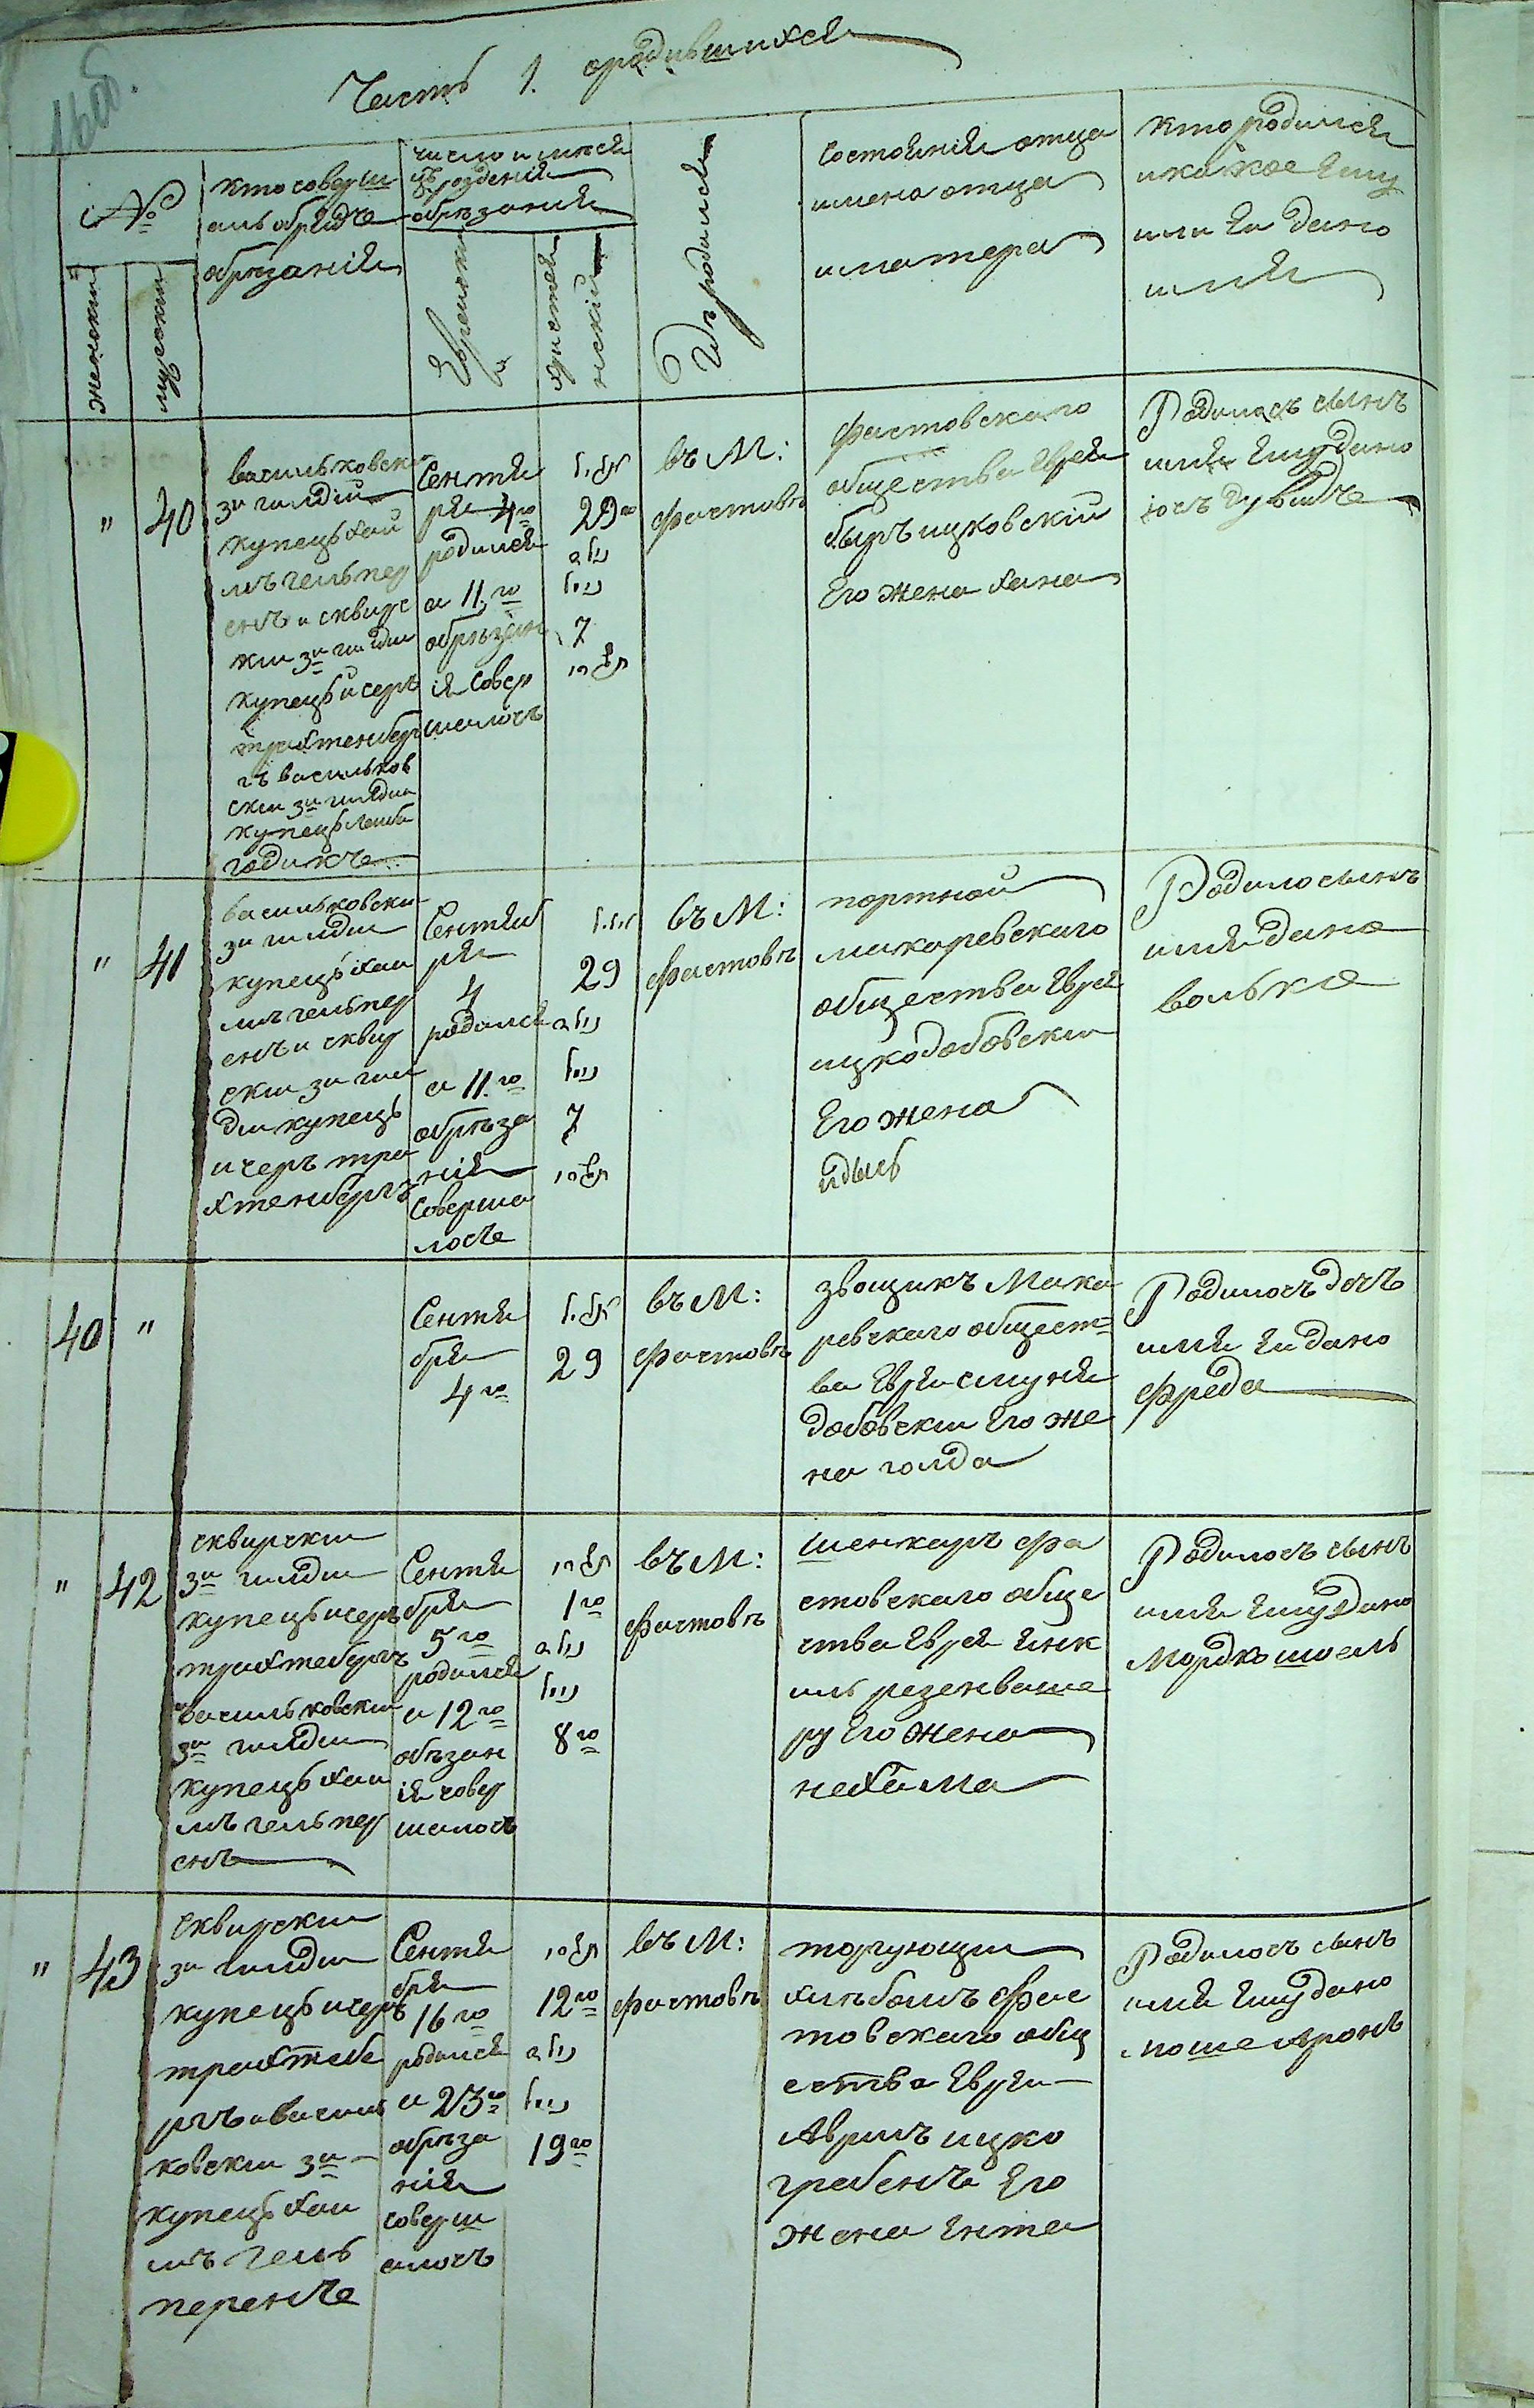 16об.
Часть 1. ородившихся
№
женский
мужский
кто соверш
алъ обрядъ
обрѣзанія
число и мѣся
цъ рожденія
обрѣзанія
Еврейски
й
христия
нский
Гдѣ родился
состоянія отца
имена отца
и матера
кто родился
и какое Ему
или Ей дано
имя
"
40
васильковски
3й гилдіи
купецъ хаи
мъ гельпер
енъ и сквирс
кии 3й гилдии
купецъ исеръ
трахтенбер
гъ васильков
скии 3й гилдии
купецъ лейба
годикъ
Сентя
ря 4го
родился
а 11.го
обрѣзан
ія совер
шалось
29го
7
въ М:
Фастовѣ
фастовского
общества Еврей
сыръ ицковскій
Его жена хана
Родилось сынъ
имя Ему дано
іосъ дувидъ
"
41
васильковски
3й гилдии
купецъ хаи
мъ гельпер
енъ и сквир
скии 3й гил
дии купецъ
исеръ тра
хтенбергъ
Сентяб
ря
4
родился
а 11.го
обрѣза
нія
соверша
лосъ
29
7
въ М:
Фастовѣ
портной
макаревского
общества Еврей
ицко добовский
Его жена
идысъ
Родилосынъ
имя дано
волько
40
"
Сентя
бря
4го
29
въ М:
Фастовѣ
звощикъ Мака
ревского общест=
ва Еврей смуня
добовский Его же
на голда
Родилось дочъ
имя Ей дано
Фреда
"
42
сквирский
3й гилдии
купецъ исеръ
трахтеберъ
васильковский
3й гилдии
купецъ хаи
мъ гельпер
енъ
Сентя
бря
5го
родился
а 12го
обѣзан
ія совер
шалось
1го
8го
въ М:
Фастовѣ
шенкаръ фа
стовского обще
ства Еврей Янк
иль резенваше
ру Его жена
нехама
Родилось сынъ
имя Ему дано
Мордко шоель
"
43
Сквирский
3й гилдии
купецъ исеръ
трахтебе
ргъ и василь
ковский 3й
купецъ хаи
мъ гель
перенъ
Сентя
бря
16го
родился
а 23го
обрѣза
нія
соверш
алось
12го
19го
въ М:
Фастовѣ
торгующии
хлѣбомъ фас
товского общ
ества Еврей
Аврумъ ицко
гребенъ Его
жена Ента
Родилось сынъ
имя Ему дано
моше аронъ